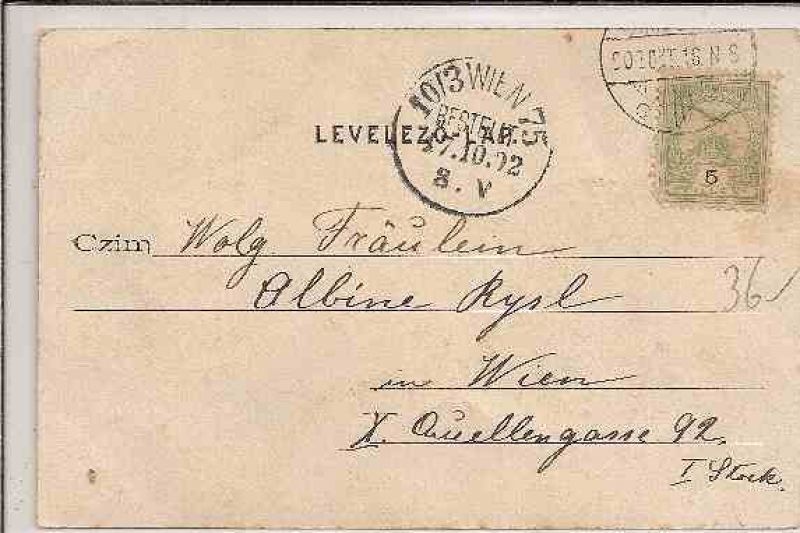 LEVELEZŐ-LAP.
10/3 WIEN 75
BESTELLT
27.10.02
8. V
5
Czim Wolg. Fräulein
Albine Rysl
36
in Wien
X. Quellengasse 92.
I Stock.